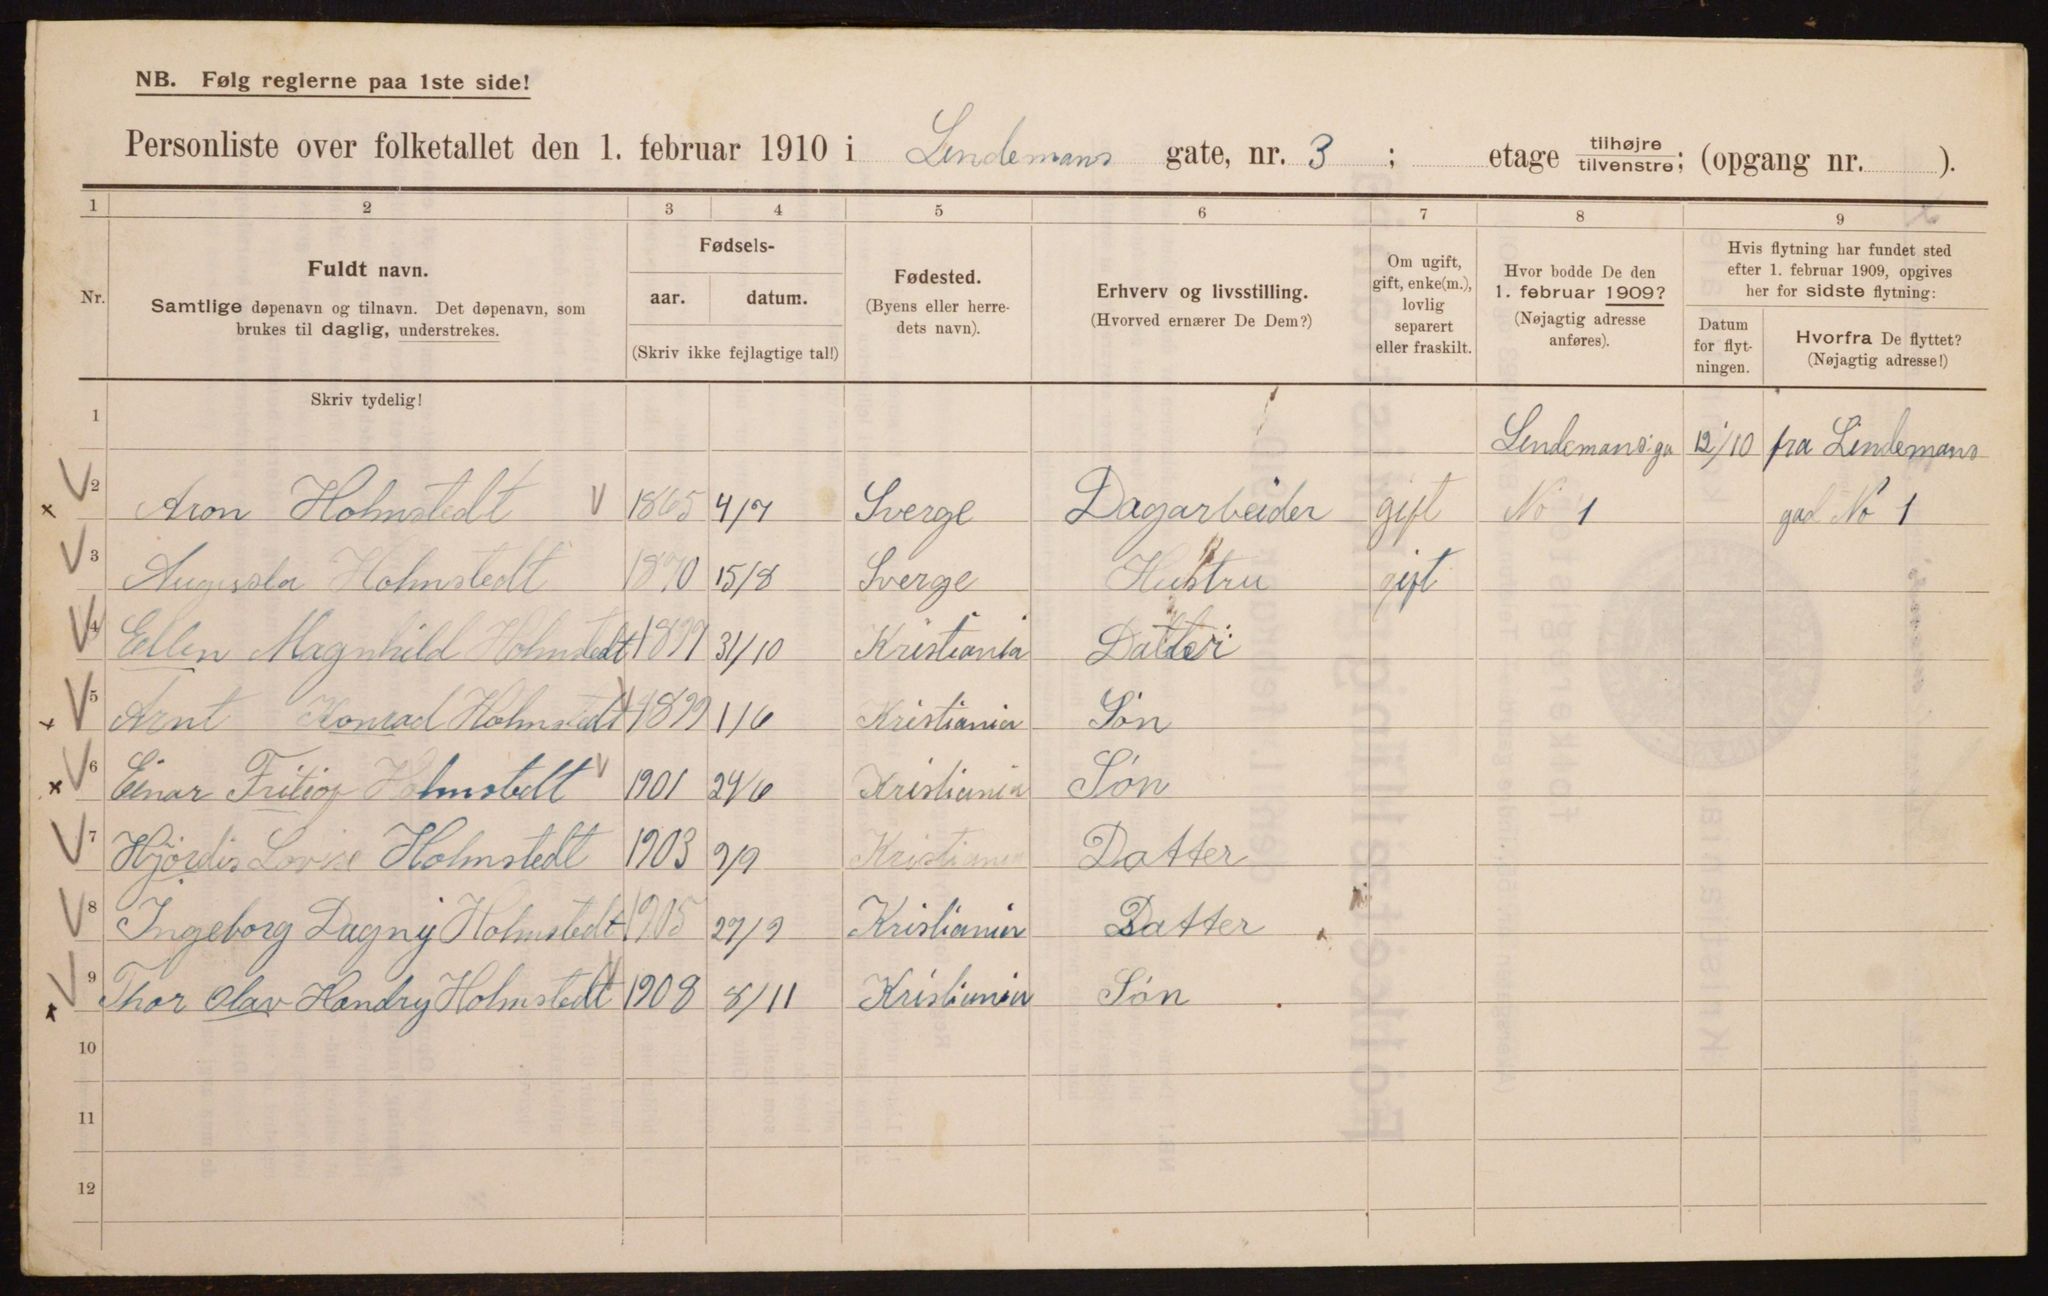 NB. Følg reglerne paa 1ste side!
Personliste over folketallet den 1. februar 1910 i Lindemans gate, nr. 3 ; etage tilhøjre tilvenstre; (opgang nr. ).
1 2 3 4 5 6 7 8 9
Nr.
Fuldt navn.
Samtlige døpenavn og tilnavn. Det døpenavn, som
brukes til daglig, understrekes.
Fødsels-
aar. datum.
(Skriv ikke fejlagtige tal!)
Fødested.
(Byens eller herre-
dets navn).
Erhverv og livsstilling.
(Hvorved ernærer De Dem?)
Om ugift,
gift, enke(m.),
lovlig
separert
eller fraskilt.
Hvor bodde De den
1. februar 1909?
(Nøjagtig adresse
anføres).
Hvis flytning har fundet sted
efter 1. februar 1909, opgives
her for sidste flytning:
Datum
for flyt-
ningen.
Hvorfra De flyttet?
(Nøjagtig adresse!)
Skriv tydelig!
1 Lindemans ga 12/10 fra Lindemans
2 Aron Holmstedt 1865 4/7 Sverge Dagarbeider gift No 1 gad No 1
3 Augusta Holmstedt 1870 15/8 Sverge Hustru gift
4 Ellen Magnhild Holmstedt 1899 31/10 Kristiania Datter
5 Arnt Konrad Holmstedt 1899 1/6 Kristiania Søn
6 Einar Fritiof Holmstedt 1901 24/6 Kristiania Søn
7 Hjørdis Lovise Holmstedt 1903 9/9 Kristiania Datter
8 Ingeborg Dagny Holmstedt 1905 27/9 Kristiania Datter
9 Thor Olav Handry Holmstedt 1908 8/11 Kristiania Søn
10
11
12